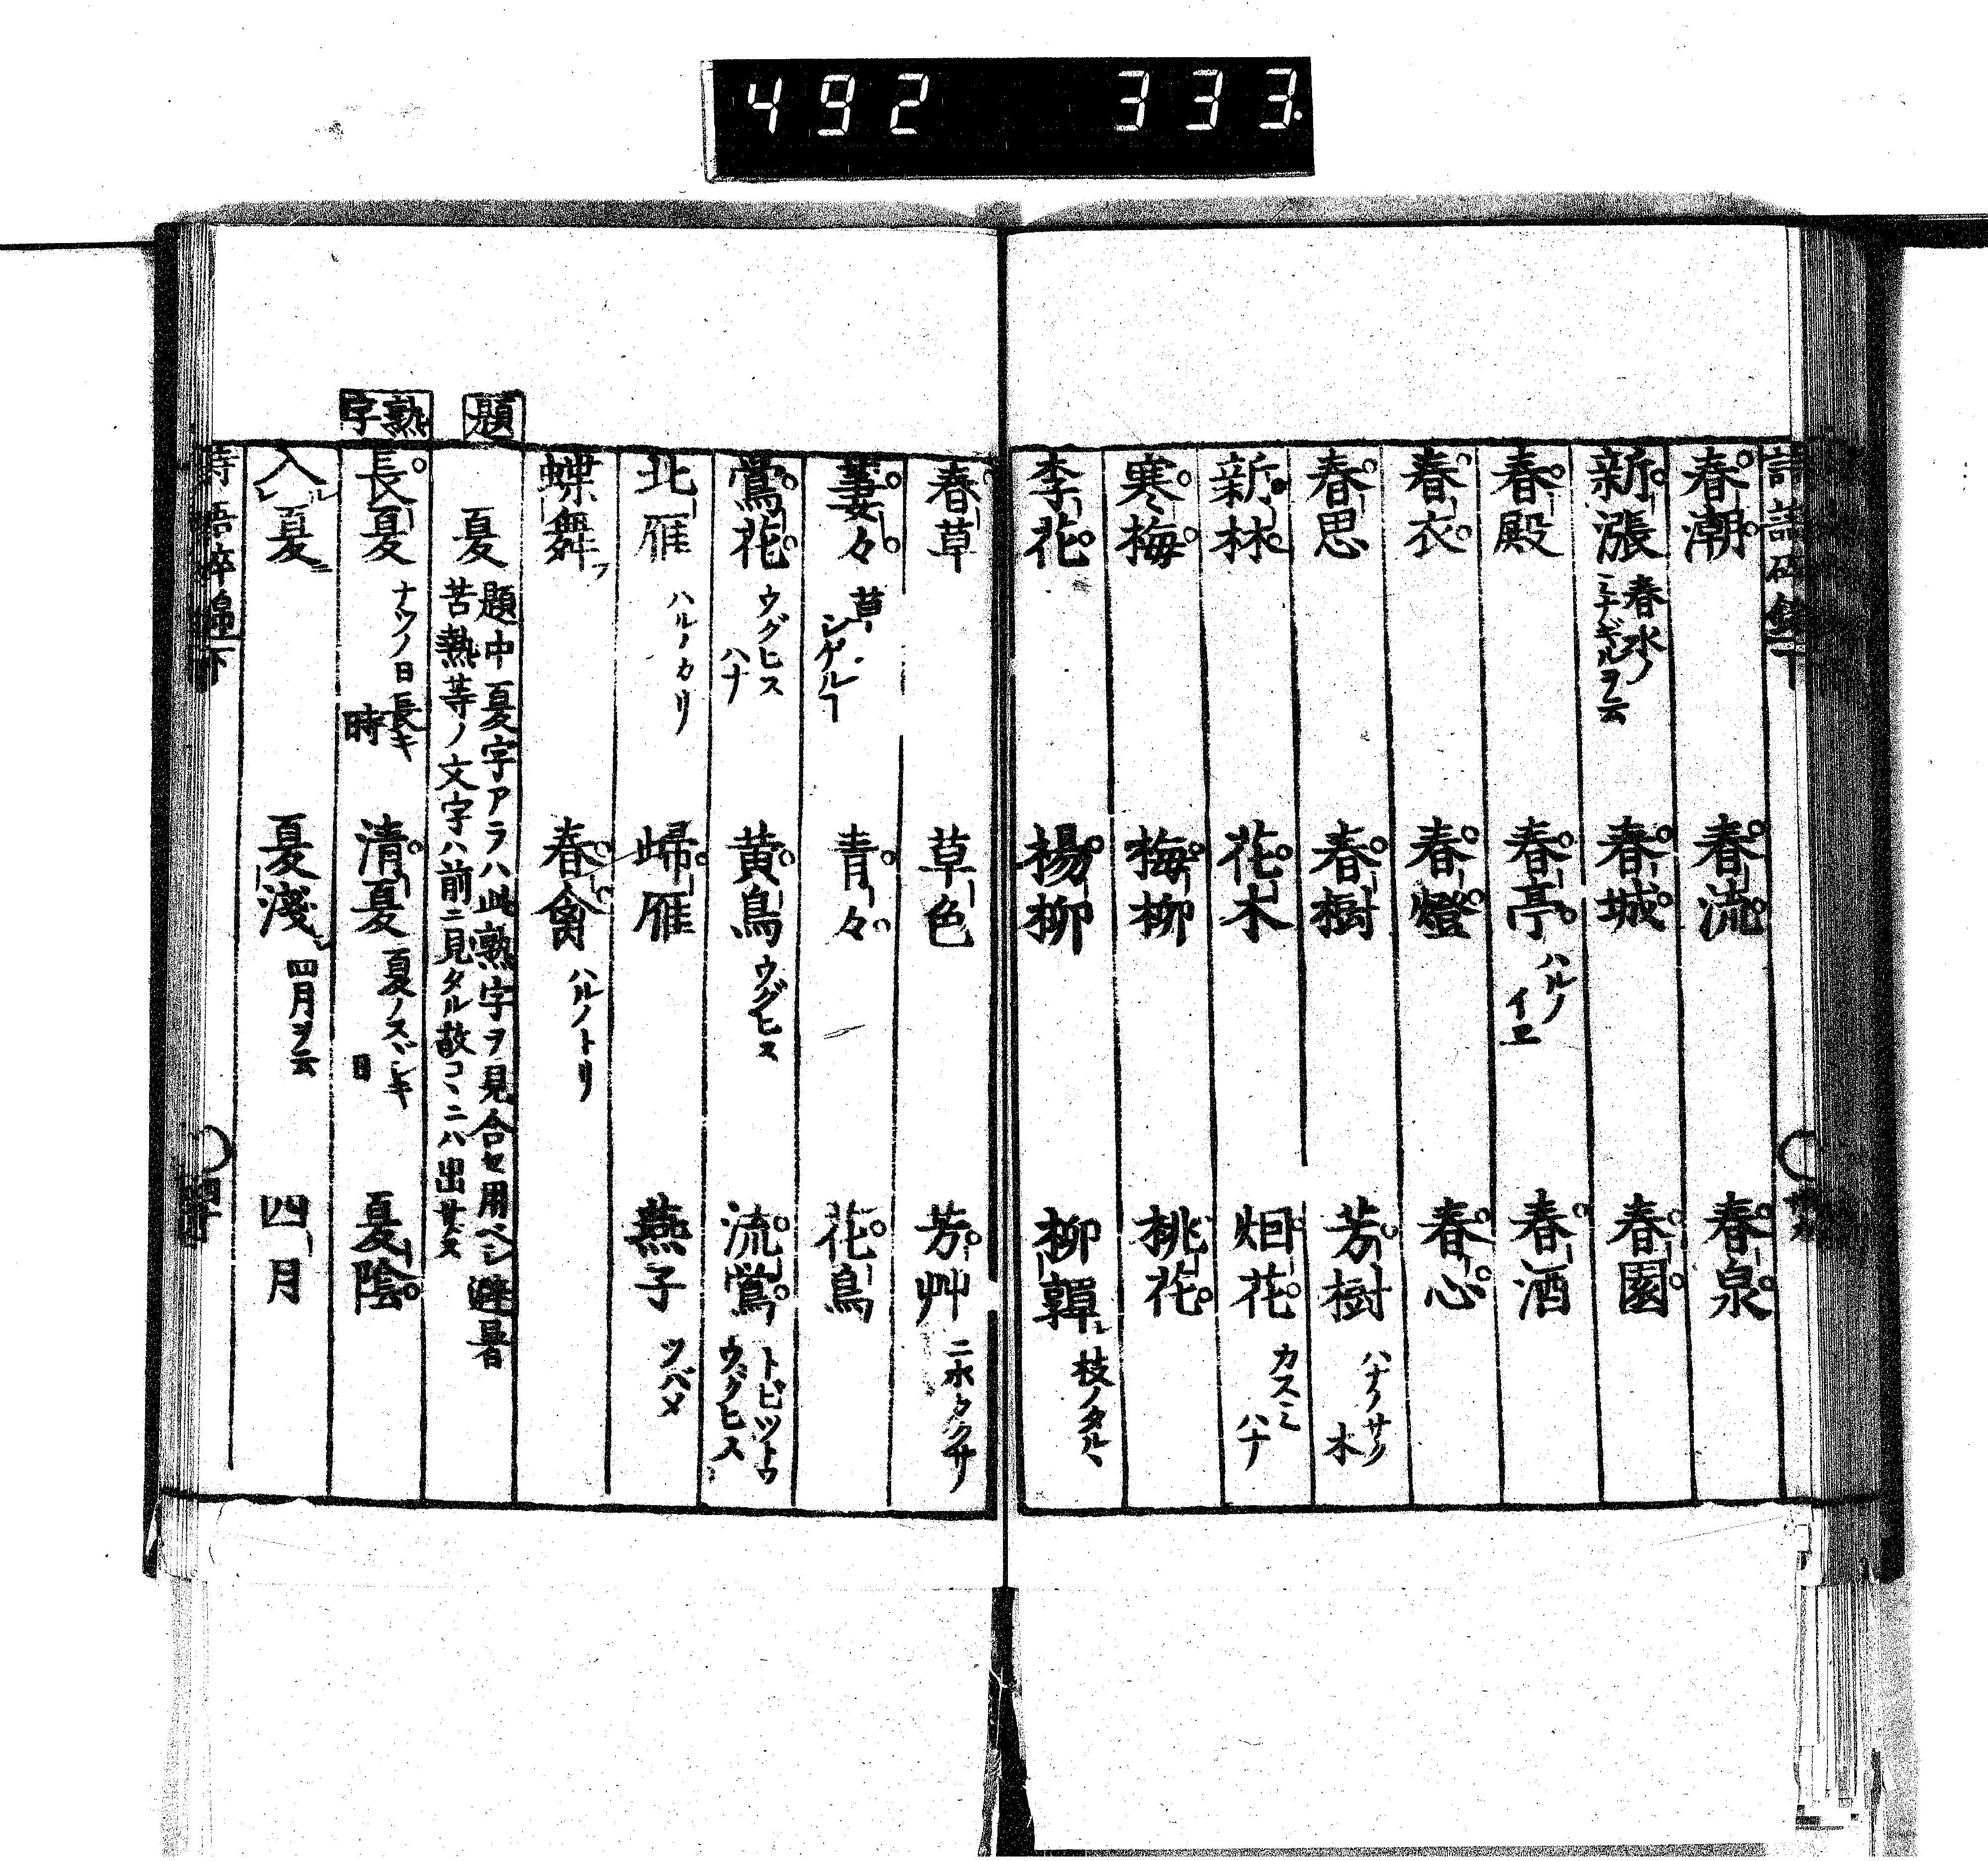 492 333.
春潮 春流 春泉
新漲 春水ノミナギルヲ云 春城 春園
春殿 春亭 ハルノイヱ 春酒
春衣 春燈 春心
春思 春樹 芳樹 ハナノサク木
新林 花木 烟花 カスミハナ
寒梅 梅柳 桃花
李花 楊柳 柳嚲 枝ノタルヽ
春草 草色 芳艸 ニホフクサ
萋々 草ノシゲルヿ 青々 花鳥
鶯花 ウグヒスハナ 黄鳥 ウグヒス 流鶯 トビツトウウグヒス
北雁 ハルノカリ 歸雁 燕子 ツバメ
蝶舞フ 春禽 ハルノトリ
題
夏 題中夏字アラハ此熟字ヲ見合セ用ベシ避暑
苦熱等ノ文字ハ前ニ見タル故コヽニハ出サズ
熟字
長夏 ナツノ日長キ時 清夏 夏ノスヾシキ日 夏陰
入レル夏ニ 夏淺シ 四月ヲ云 四月
詩語碎錦 下